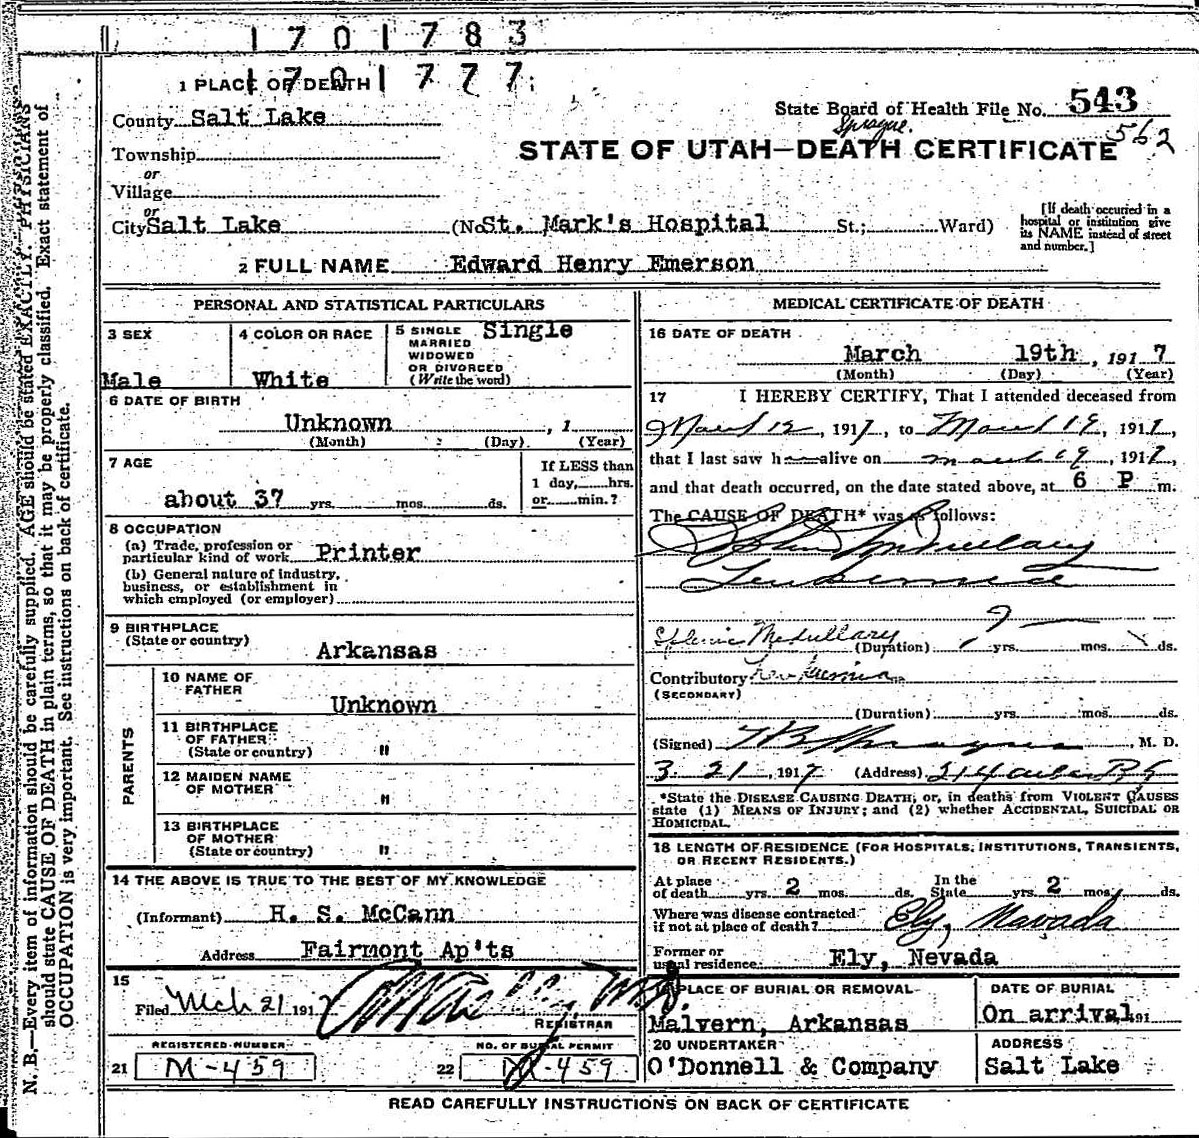 1701783
1 PLACE OF DEATH 1701777
County Salt Lake
State Board of Health File No. 543
Sprague.
562
Township
or
STATE OF UTAH—DEATH CERTIFICATE
Village
or
City Salt Lake (No. St. Mark's Hospital St.; Ward)
[If death occurred in a
hospital or institution give
its NAME instead of street
and number.]
2 FULL NAME Edward Henry Emerson
PERSONAL AND STATISTICAL PARTICULARS
3 SEX
Male
4 COLOR OR RACE
White
5 SINGLE Single
MARRIED
WIDOWED
OR DIVORCED
(Write the word)
6 DATE OF BIRTH
Unknown , 1
(Month) (Day) (Year)
7 AGE
about 37 yrs. mos. ds.
If LESS than
1 day, hrs.
or min.?
8 OCCUPATION
(a) Trade, profession or
particular kind of work Printer
(b) General nature of industry,
business, or establishment in
which employed (or employer)
9 BIRTHPLACE
(State or country)
Arkansas
PARENTS
10 NAME OF
FATHER
Unknown
11 BIRTHPLACE
OF FATHER
(State or country) "
12 MAIDEN NAME
OF MOTHER "
13 BIRTHPLACE
OF MOTHER
(State or country) "
14 THE ABOVE IS TRUE TO THE BEST OF MY KNOWLEDGE
(Informant) H. S. McCann
Address Fairmont Ap'ts
15
Filed Mch 21 1917
REGISTRAR
REGISTERED NUMBER
21 M-459
NO. OF BURIAL PERMIT
22 M-459
MEDICAL CERTIFICATE OF DEATH
16 DATE OF DEATH
March 19th , 1917
(Month) (Day) (Year)
17 I HEREBY CERTIFY, That I attended deceased from
March 12, 1917, to March 19, 1917,
that I last saw h alive on March 19, 1917,
and that death occurred, on the date stated above, at 6 P m.
The CAUSE OF DEATH* was as follows:
Medullary
Leukemia
Splenic Medullary
(Duration) yrs. mos. ds.
Contributory Leukemia
(SECONDARY)
(Duration) yrs. mos. ds.
(Signed) Sprague, M. D.
3-21, 1917 (Address)
*State the DISEASE CAUSING DEATH; or, in deaths from VIOLENT CAUSES
state (1) MEANS OF INJURY; and (2) whether ACCIDENTAL, SUICIDAL OR
HOMICIDAL.
18 LENGTH OF RESIDENCE (FOR HOSPITALS, INSTITUTIONS, TRANSIENTS,
OR RECENT RESIDENTS.)
At place
of death yrs. 2 mos. ds.
In the
State yrs. 2 mos. ds.
Where was disease contracted
if not at place of death? Ely, Nevada
Former or
usual residence Ely, Nevada
19 PLACE OF BURIAL OR REMOVAL
Malvern, Arkansas
DATE OF BURIAL
On arrival, 191
20 UNDERTAKER
O'Donnell & Company
ADDRESS
Salt Lake
READ CAREFULLY INSTRUCTIONS ON BACK OF CERTIFICATE
N. B.—Every item of information should be carefully supplied. AGE should be stated EXACTLY. PHYSICIANS
should state CAUSE OF DEATH in plain terms, so that it may be properly classified. Exact statement of
OCCUPATION is very important. See instructions on back of certificate.